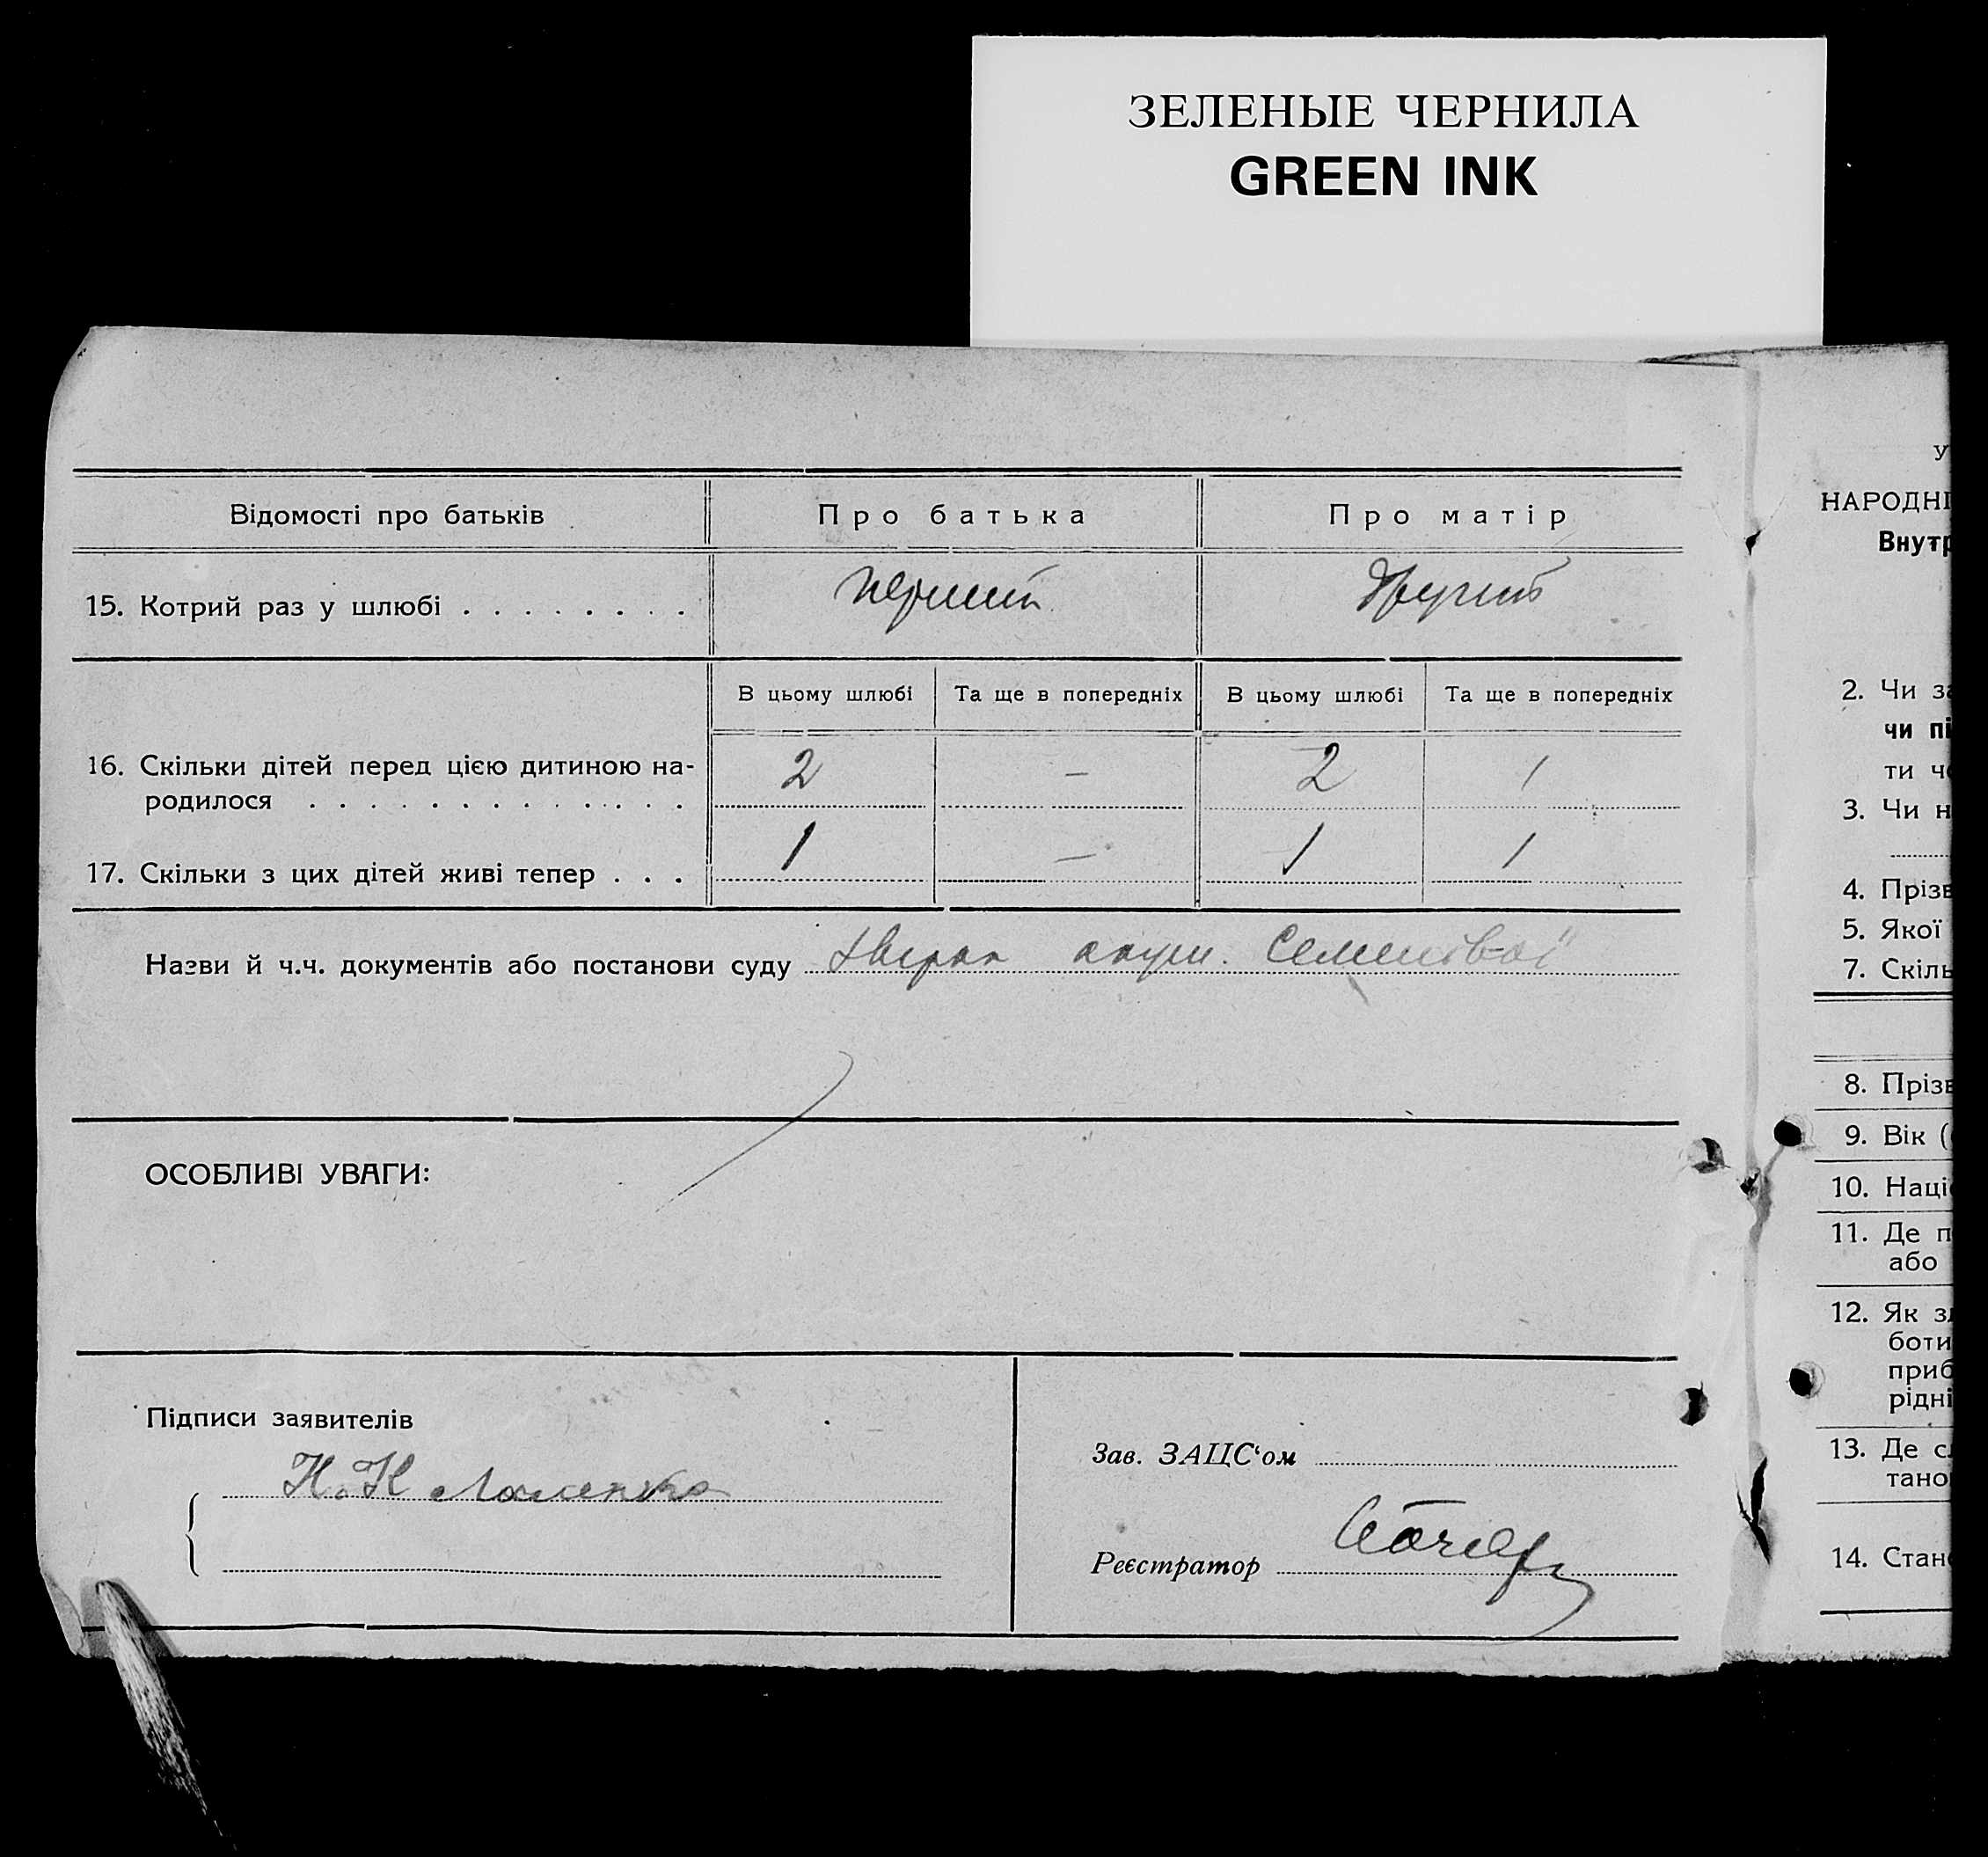 ЗЕЛЕНЫЕ ЧЕРНИЛА
GREEN INK
Відомості про батьків Про батька Про матір
15. Котрий раз у шлюбі . . . . . . . . перший другий
В цьому шлюбі Та ще в попередніх В цьому шлюбі Та ще в попередніх
16. Скільки дітей перед цією дитиною на-
родилося . . . . . . . . . . . . . 2 — 2 1
17. Скільки з цих дітей живі тепер . . . 1 — 1 1
Назви й ч.ч. документів або постанови суду акуш.
ОСОБЛИВІ УВАГИ:
Підписи заявителів
Н. Н
Зав. ЗАЦС‘ом
Реєстратор
У
НАРОДНІ
Внутр
2. Чи за
чи пі
ти ч
3. Чи н
4. Прізв
5. Якої
7. Скіль
8. Прізв
9. Вік (
10. Наці
11. Де п
або
12. Як з
боти
приб
рідні
13. Де с
тано
14. Стан